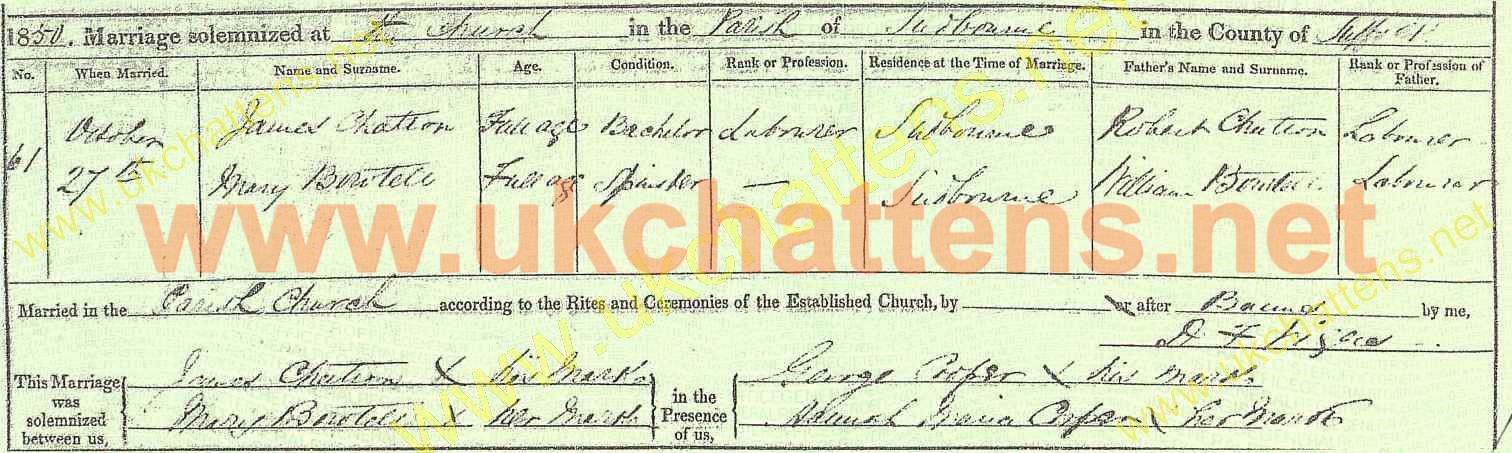 1850. Marriage solemnized at the Church in the Parish of Sudbourne in the County of Suffolk
No. When Married. Name and Surname. Age. Condition. Rank or Profession. Residence at the Time of Marriage. Father's Name and Surname. Rank or Profession of Father.
61 October 27th James Chatton Full age Bachelor Labourer Sudbourne Robert Chatton Labourer
Mary Bowtell Full age Spinster — Sudbourne William Bowtell Labourer
www.ukchattens.net
Married in the Parish Church according to the Rites and Ceremonies of the Established Church, by or after Banns by me,
This Marriage was solemnized between us, James Chattin X his Mark in the Presence of us, George Cooper X his mark
Mary Bowtell X her Mark Hannah Maria Cooper X her Mark
www.ukchattens.net
www.ukchattens.net
www.ukchattens.net
www.ukchattens.net